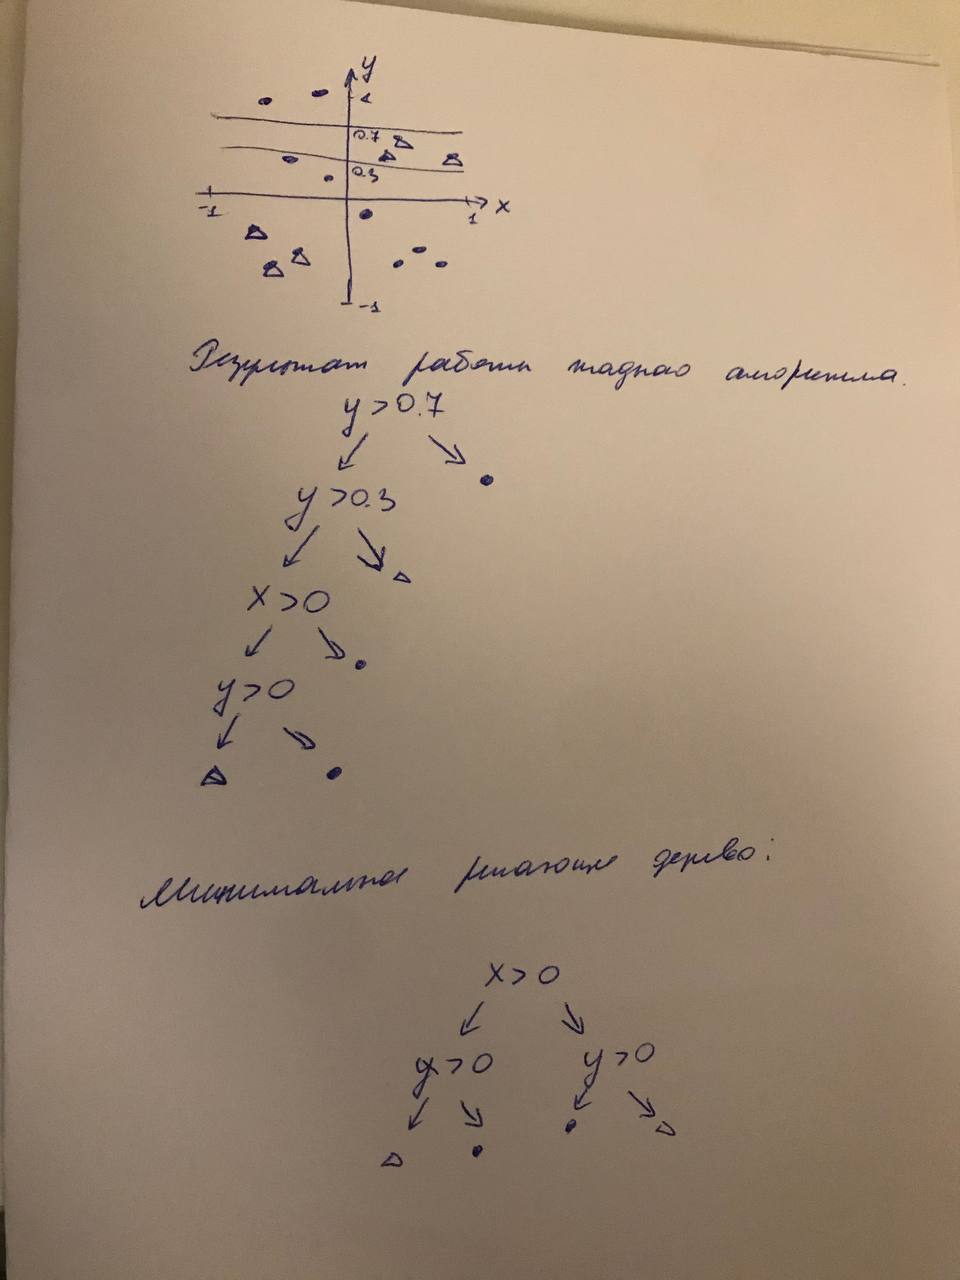 y
1
0.7
0.3
-1
1
x
-1
Результат работы жадного алгоритма.
y > 0.7
y > 0.3
x > 0
y > 0
Минимальное решающее дерево:
x > 0
y > 0 y > 0